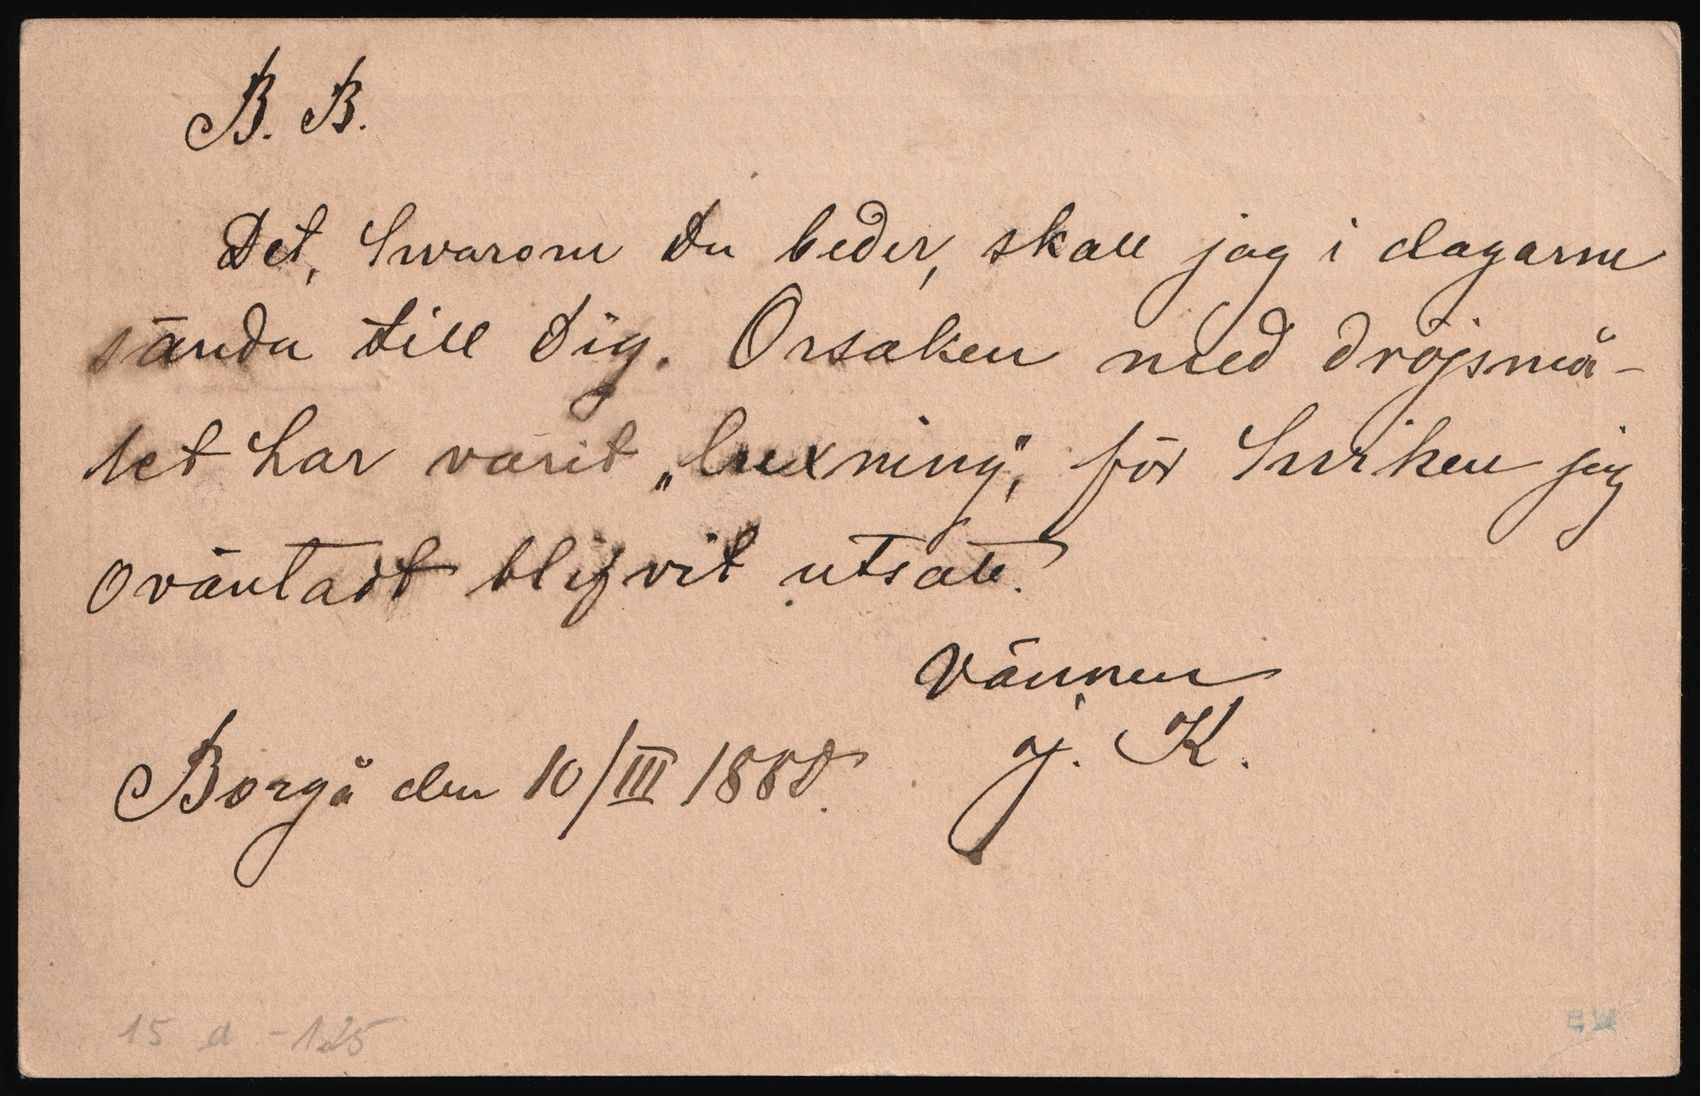 B. B.
Det, hvarom Du beder, skall jag i dagarne
sända till Dig. Orsaken med dröjsmå-
let har varit „luxning", för hvilken jag
oväntadt blifvit utsatt.
Vännen
J. K.
Borgå den 10/III 1888.
15 a -125